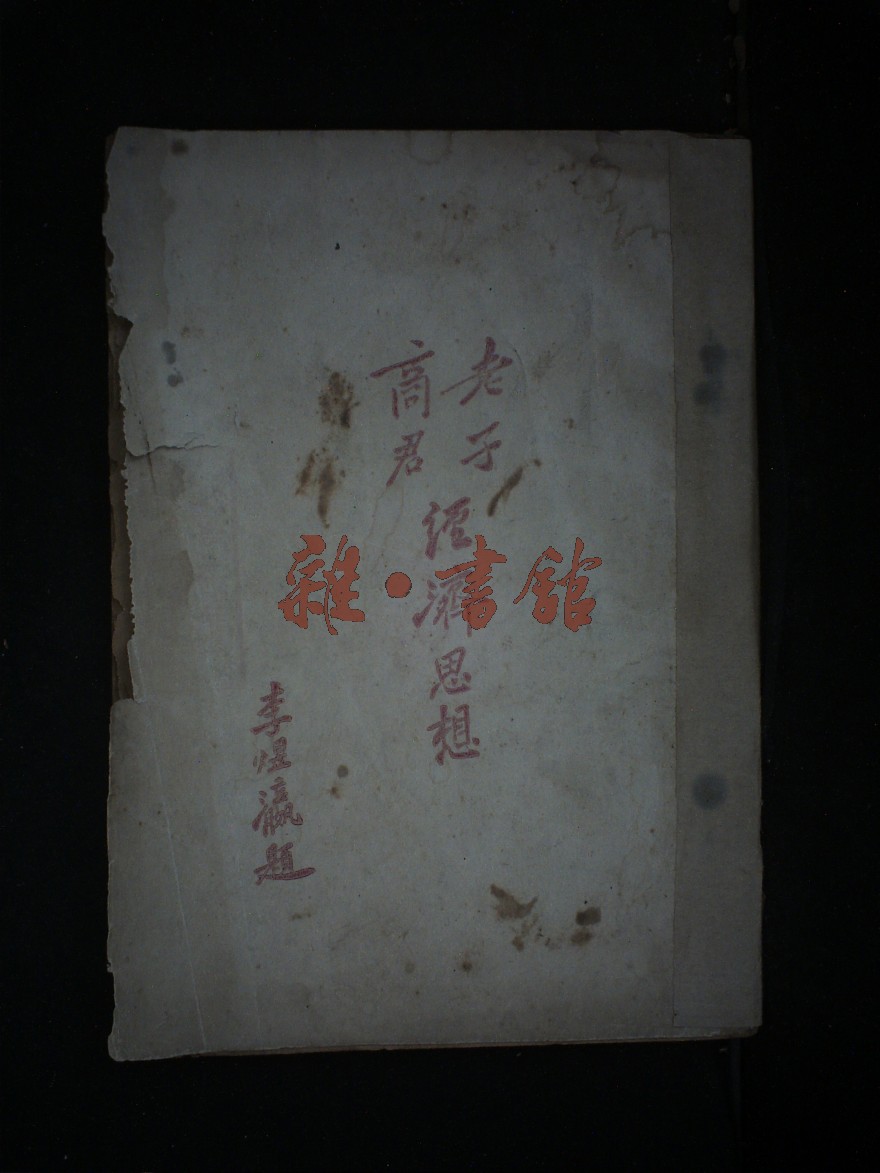 老子
商君
經濟思想
李煜瀛題
雜·書館